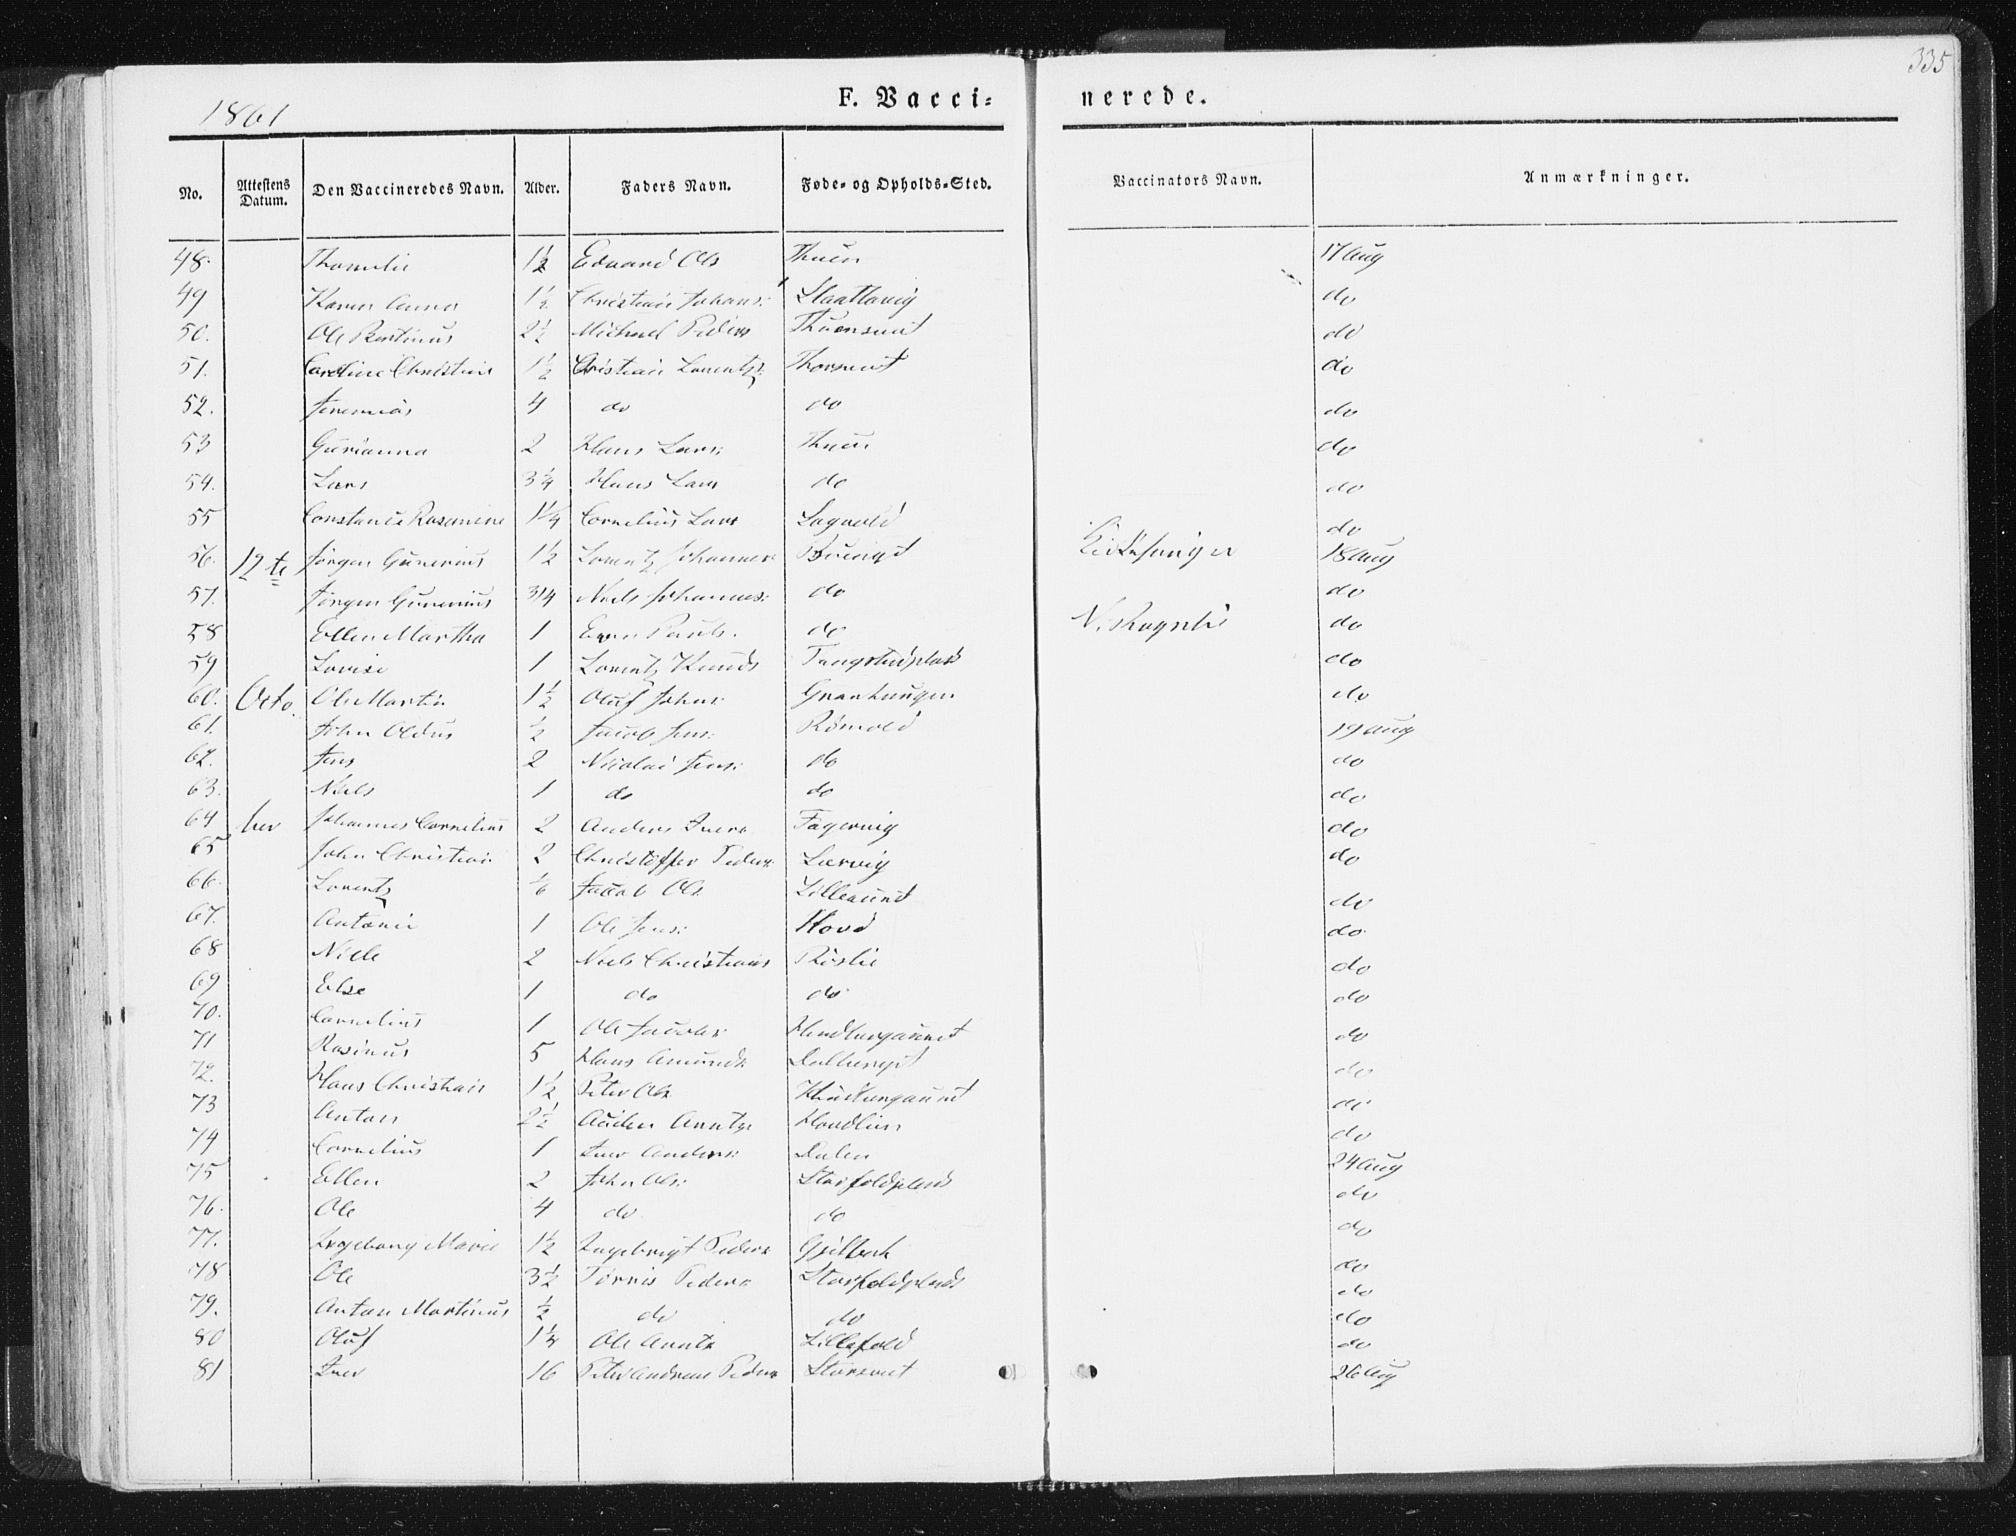 335
1861
F. Vaccinerede.
No. Attestens Datum. Den Vaccineredes Navn. Alder. Faders Navn. Føde- og Opholds-Sted. Vaccinators Navn. Anmærkninger.
48. 1½ Eduard Ols Thuen 17 Aug
49 Karen Anna 1½ Christian Johans: do
50. Ole Bertinus 2½ Michael Peders do
51. Caroline Christine 1½ Christian Lorentz: do
52. Jeremias 4 do do do
53 Gurianna 2 Hans Lars: Thuen do
54. Lars 3¼ Hans Lars do do
55 Constance Rosamine 1¼ Cornelius Lars do
56. 12te Jørgen Gunerius 1½ Lorentz Johannes Kirkesanger 18 Aug
57. Jørgen Gunerius 3/4 Niels Johannes: do do
58 Ellen Martha 1 Even Pauls. do N. Rognlie do
59 Lovise 1 Lorentz Knuds do
60. Octo Ole Martin 1½ Oluf Johns: do
61. John Oldus ½ Jacob Jens: 19 Aug
62. Jens 2 Nicolai Jens: do do
63. Niels 1 do do do
64 ber Johannes Cornelius 2 Anders Ivers Fagervig do
65 John Christian 2 Christoffer Peders Lervig do
66. Lorentz 1/6 Jacob Ols do
67. Antonie 1 Ole Jens: Hovd do
68 Niels 2 Niels Christians do
69 Else 1 do do do
70. Cornelius 1 Ole Jacobs do
71 Rasinus 5 Hans Amunds do
72. Hans Christian 1½ Peter Ols do
73 Anton 2½ Auden Arnts do
74 Cornelius 1 Iver Anders: Dalen 24 Aug
75 Ellen 2 John Ols: do
76. Ole 4 do do do
77. Ingeborg Marie 1½ Ingebrigt Peders do
78 Ole 3½ Tørris Peders do
79. Anton Martinus ½ do do do
80 Oluf 1¼ Ole Arnts Lillefold do
81 Iver 16 Peter Andreas Peders 26 Aug